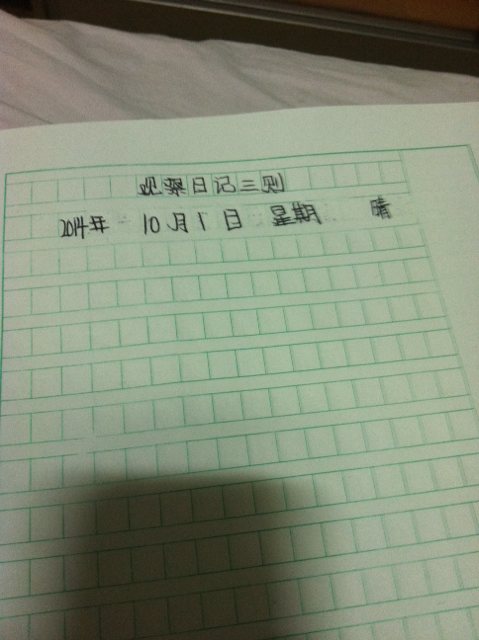 观察日记三则
2014年 10月1日 星期 晴